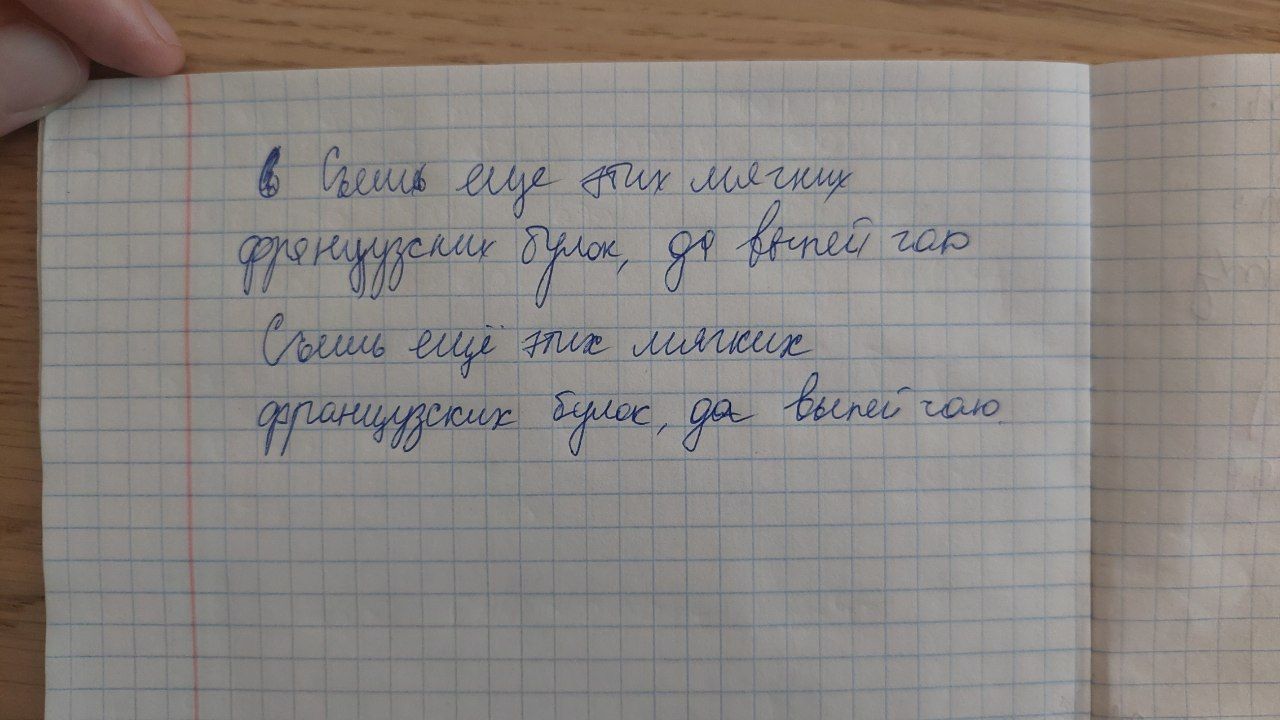 Съешь еще этих мягких
французских булок, да выпей чаю
Съешь ещё этих мягких
французских булок, да выпей чаю.